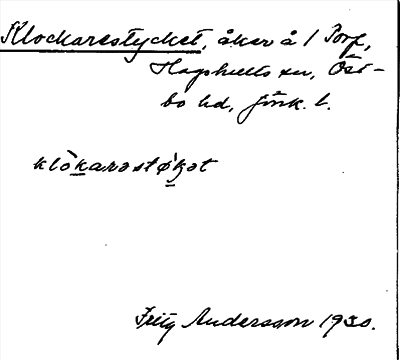 Klockarestycket, åker å 1 Torp,
Hagshults sn, Öst-
bo hd, Jönk. l.
klo̱karəstø̱kət
Fritz Andersson 1930.